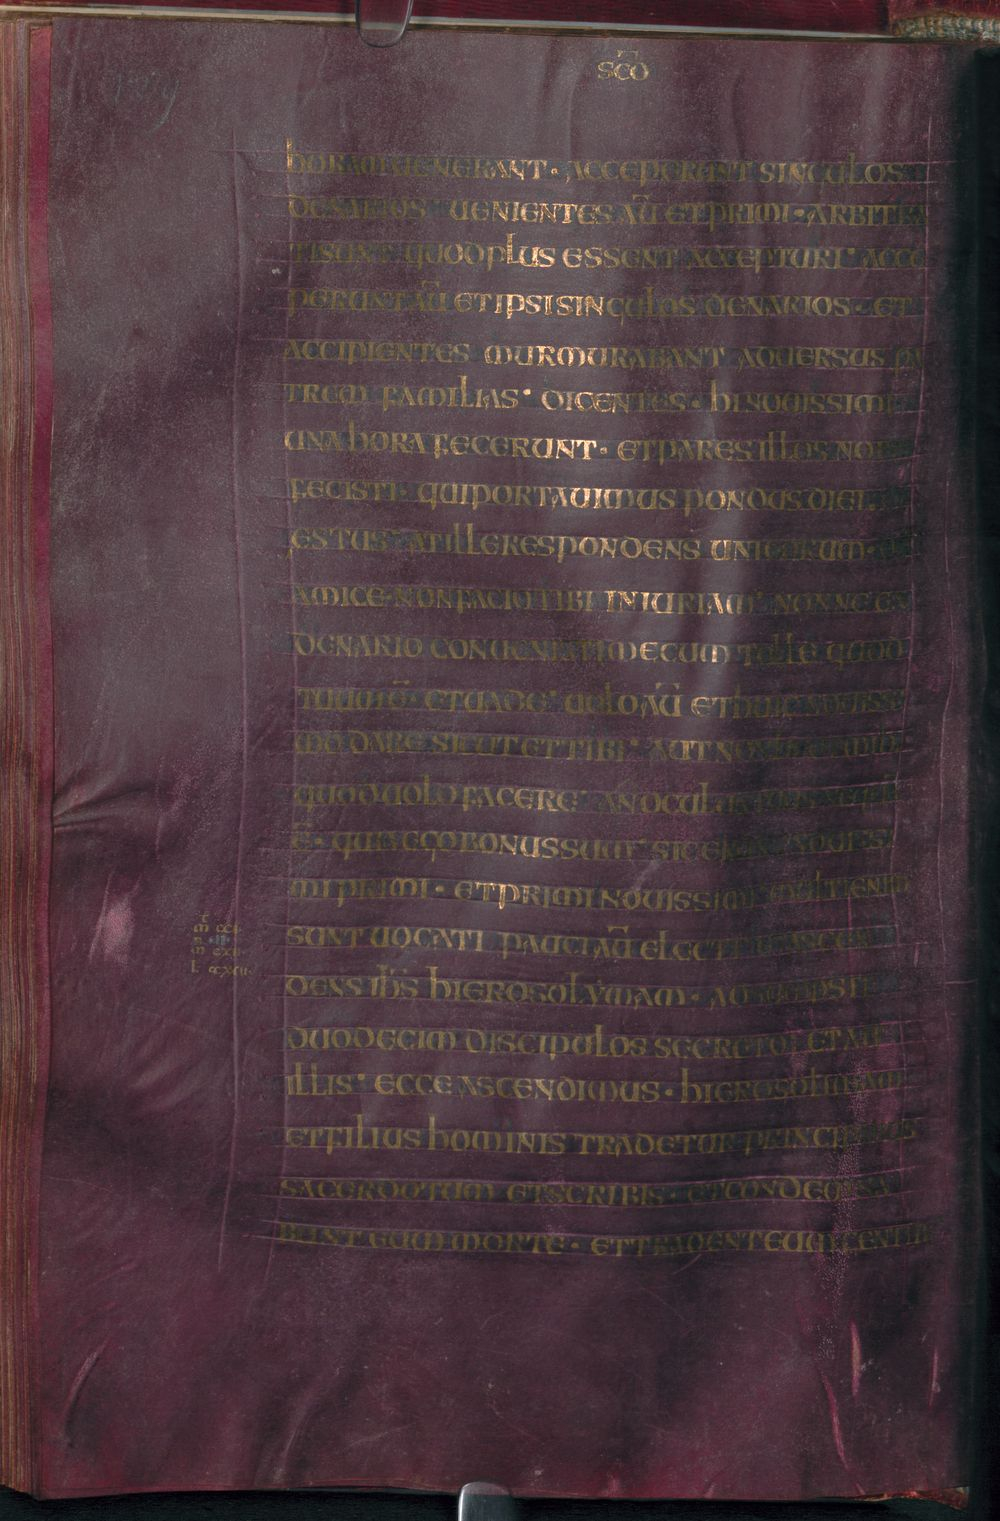 SCD
HORAM UENERANT · ACCEPERANT SINGULOS
DENARIOS · UENIENTES AŪ ET PRIMI · ARBITRA
TI SUNT QUOD PLUS ESSENT ACCEPTURI · ACCE
PERUNT AŪ ET IPSI SINGULOS DENARIOS · ET
ACCIPIENTES MURMURABANT ADUERSUS PA
TREM FAMILIAS · DICENTES · HI NOUISSIMI
UNA HORA FECERUNT · ET PARES ILLOS NOBIS
FECISTI · QUI PORTAUIMUS PONDUS DIEI
ESTUS · AT ILLE RESPONDENS UNI EORUM ·
AMICE · NON FACIO TIBI INIURIAM · NONNE EX
DENARIO CONUENISTI MECUM TOLLE QUOD
TUUM Ē · ET UADE · UOLO AŪ ET HUIC NOUISSI
MO DARE SICUT ET TIBI · AUT NON LICET MIHI
QUOD UOLO FACERE · AN OCULUS TUUS NEQUĀ
Ē · QUIA EGO BONUS SUM · SIC ERUNT NOUISSI
MI PRIMI · ET PRIMI NOUISSIMI MULTI ENIM
SUNT UOCATI PAUCI AŪ ELECTI ET ASCEN
DENS IH̄S HIEROSOLYMAM · ADSUMPSIT
DUODECIM DISCIPULOS SECRETO · ET AIT
ILLIS · ECCE ASCENDIMUS · HIEROSOLIMAM
ET FILIUS HOMINIS TRADETUR PRINCIPIBUS
SACERDOTUM ET SCRIBIS · ET CONDEMNA
BUNT EUM MORTE · ET TRADENT EUM GENTIB